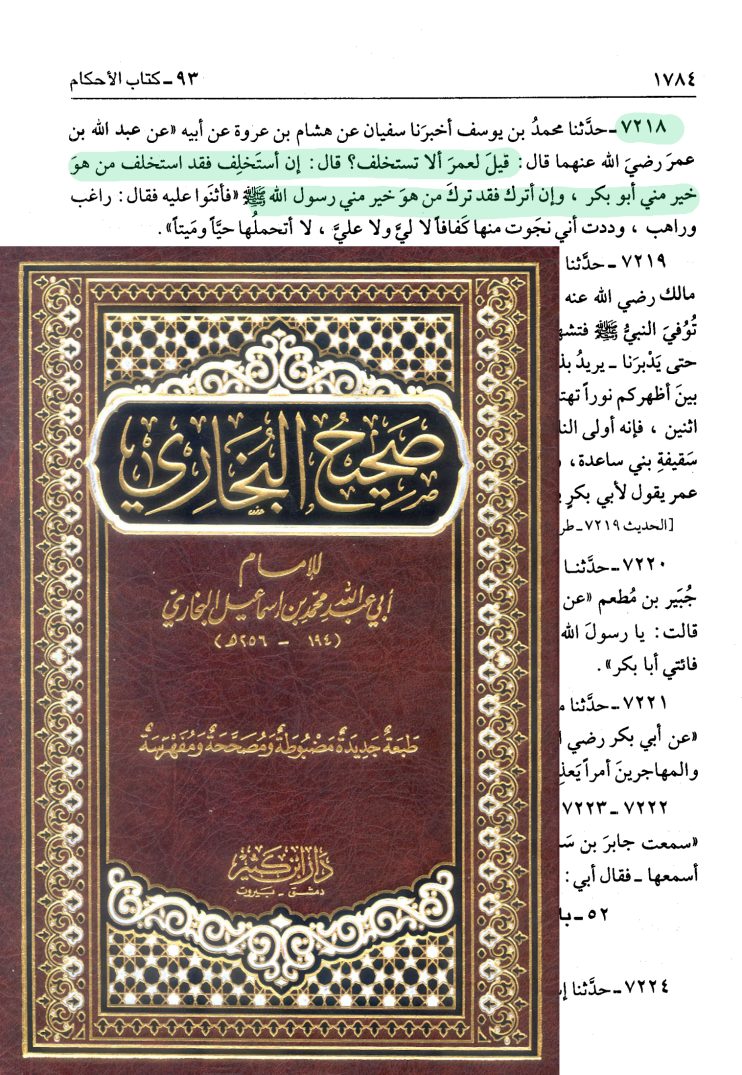 ١٧٨٤
٩٣ ـ كتاب الأحكام
٧٢١٨ ـ حدَّثنا محمدُ بن يوسف أخبرَنا سفيان عن هشام بن عروة عن أبيه «عن عبد الله بن
عمرَ رضيَ الله عنهما قال: قيلَ لعمرَ ألا تستخلف؟ قال: إن أستَخلِف فقد استخلف من هوَ
خير مني أبو بكر ، وإن أترك فقد تركَ من هوَ خير مني رسول الله ﷺ «فأثنَوا عليه فقال: راغب
وراهب ، وددت أني نجَوت منها كَفافاً لا ليَّ ولا عليَّ ، لا أتحملُها حيَّاً ومَيتاً» .
٧٢١٩ ـ حدَّثنا
مالك رضي الله عنه
تُوُفيَ النبيُّ ﷺ فتشه
حتى يَدْبرَنا ـ يريدُ بذ
بينَ أظهركم نوراً تهت
اثنين ، فإنه أولى النا
سَقيفةِ بني ساعدة،
عمر يقول لأبي بكرٍ
[الحديث ٧٢١٩ ـ طر
٧٢٢٠ ـ حدَّثنا
جُبَير بن مُطعم «عن
قالت: يا رسولَ الله
فائتي أبا بكر» .
٧٢٢١ ـ حدَّثنا م
«عن أبي بكر رضي ا
والمهاجرينَ أمراً يَعذِ
٧٢٢٢ ـ ٧٢٢٣
«سمعت جابرَ بن سَ
أسمعها ـ فقال أبي:
٥٢ ـ با
٧٢٢٤ ـ حدَّثنا إ
صَحِيحُ البُخَارِي
للإمام
أبي عبد الله محمد بن إسماعيل البخاري
(١٩٤ - ٢٥٦هـ)
طَبعَةٌ جَدِيدَةٌ مَضبُوطَةٌ وَمُصَحَّحَةٌ وَمُفَهرَسَةٌ
دَارُ ابن كَثير
دمشق - بيروت